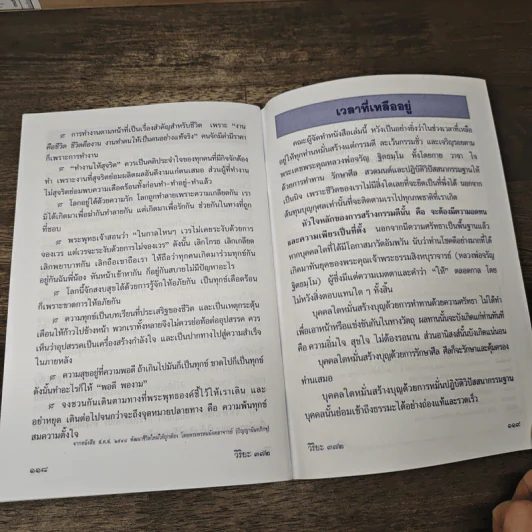 ๙ การทำงานตามหน้าที่เป็นเรื่องสำคัญสำหรับชีวิต เพราะ "งาน
คือชีวิต ชีวิตคืองาน งานทำคนให้เป็นคนอย่างแท้จริง" คนจักมีค่ามีราคา
ก็เพราะการทำงาน
๙ "ทำงานให้สุจริต" ควรเป็นคติประจำใจของทุกคนที่มีกิจจักต้อง
ทำ เพราะงานที่สุจริตย่อมผลิตผลอันดีงามแก่ตนเสมอ ส่วนผู้ที่ทำงาน
ไม่สุจริตย่อมพบความเดือดร้อนทั้งก่อนทำ-ทำอยู่-ทำแล้ว
๙ โลกอยู่ได้ด้วยความรัก โลกถูกทำลายเพราะความเกลียดกัน เรา
มิได้เกิดมาเพื่อฆ่ากันทำลายกัน แต่เกิดมาเพื่อรักกัน ช่วยกันในทางที่ถูก
ที่ชอบ
๙ พระพุทธเจ้าสอนว่า "ในกาลไหนๆ เวรไม่เคยระงับด้วยการ
จองเวร แต่เวรจะระงับด้วยการไม่จองเวร" ดังนั้น เลิกโกรธ เลิกเกลียด
เลิกพยาบาทกัน เลิกถือเขาถือเรา ให้ถือว่าทุกคนเกิดมาร่วมทุกข์กัน
อยู่กันฉันพี่น้อง หันหน้าเข้าหากัน ก็อยู่กันสบายไม่มีปัญหาอะไร
๙ โลกนี้จักสงบสุขได้ด้วยการรู้จักให้อภัยกัน เป็นทุกข์เดือดร้อน
ก็เพราะขาดการให้อภัยกัน
๙ ความทุกข์เป็นบทเรียนที่ประเสริฐของชีวิต และเป็นเหตุกระตุ้น
เตือนให้ก้าวไปข้างหน้า พวกเราทั้งหลายจึงไม่ควรย่อท้อต่ออุปสรรค ควร
เห็นว่าอุปสรรคเป็นเครื่องสร้างกำลังใจ และเป็นปากทางไปสู่ความสำเร็จ
ในภายหลัง
๙ ความสุขอยู่ที่ความพอดี ถ้าเกินไปมันก็เป็นทุกข์ ขาดไปก็เป็นทุกข์
ดังนั้นทำอะไรก็ให้ "พอดี พองาม"
๙ จงชวนกันเดินตามทางที่พระพุทธองค์ชี้ไว้ให้เราเดิน และ
อย่าหยุด เดินต่อไปจนกว่าจะถึงจุดหมายปลายทาง คือ ความพ้นทุกข์
สมความตั้งใจ
๑๑๘
วิริยะ ๓๗๒
เวลาที่เหลืออยู่
คณะผู้จัดทำหนังสือเล่มนี้ หวังเป็นอย่างยิ่งว่าในช่วงเวลาที่เหลือ
อยู่ให้ทุกท่านหมั่นสร้างแต่กรรมดี ละเว้นกรรมชั่ว และเจริญรอยตาม
พระเดชพระคุณหลวงพ่อจรัญ ฐิตธมฺโม ทั้งโดยกาย วาจา ใจ
ด้วยการทำทาน รักษาศีล สวดมนต์และปฏิบัติวิปัสสนากรรมฐานให้
เป็นนิจ เพราะชีวิตของเราไม่มีสิ่งใดเลยที่จะยึดเป็นที่พึ่งได้ นอกจาก
ต้นทุนบุญกุศลเท่านั้นที่จะติดตามเราไปทุกภพชาติที่เราเกิด
หัวใจหลักของการสร้างกรรมดีนั้น คือ จะต้องมีความอดทน
และความเพียรเป็นที่ตั้ง นอกจากมีความศรัทธาเป็นพื้นฐานแล้ว
หากบุคคลใดที่ได้มีโอกาสมาวัดอัมพวัน นับว่าท่านโชคดีอย่างมากที่ได้
เกิดมาทันยุคของพระคุณเจ้าพระธรรมสิงหบุราจารย์ (หลวงพ่อจรัญ
ฐิตธมฺโม) ผู้ซึ่งมีแต่ความเมตตาและคำว่า "ให้" ตลอดกาล โดย
ไม่หวังสิ่งตอบแทนใด ๆ ทั้งสิ้น
บุคคลใดหมั่นสร้างบุญด้วยการทำทานด้วยความศรัทธา ไม่ได้ทำ
เพื่อเอาหน้าหรือแข่งขันกันในทางวัตถุ ผลทานนั้นจะบังเกิดแก่ท่านทันที
คือ ความอิ่มใจ สุขใจ ไม่ต้องรอนาน ส่วนอานิสงส์นั้นบังเกิดแน่นอน
บุคคลใดหมั่นสร้างบุญด้วยการรักษาศีล ศีลก็จะรักษาและคุ้มครอง
ท่านเสมอ
บุคคลใดหมั่นสร้างบุญด้วยการหมั่นปฏิบัติวิปัสสนากรรมฐาน
บุคคลนั้นย่อมเข้าถึงธรรมะได้อย่างถ่องแท้และรวดเร็ว
วิริยะ ๓๗๒
๑๑๙